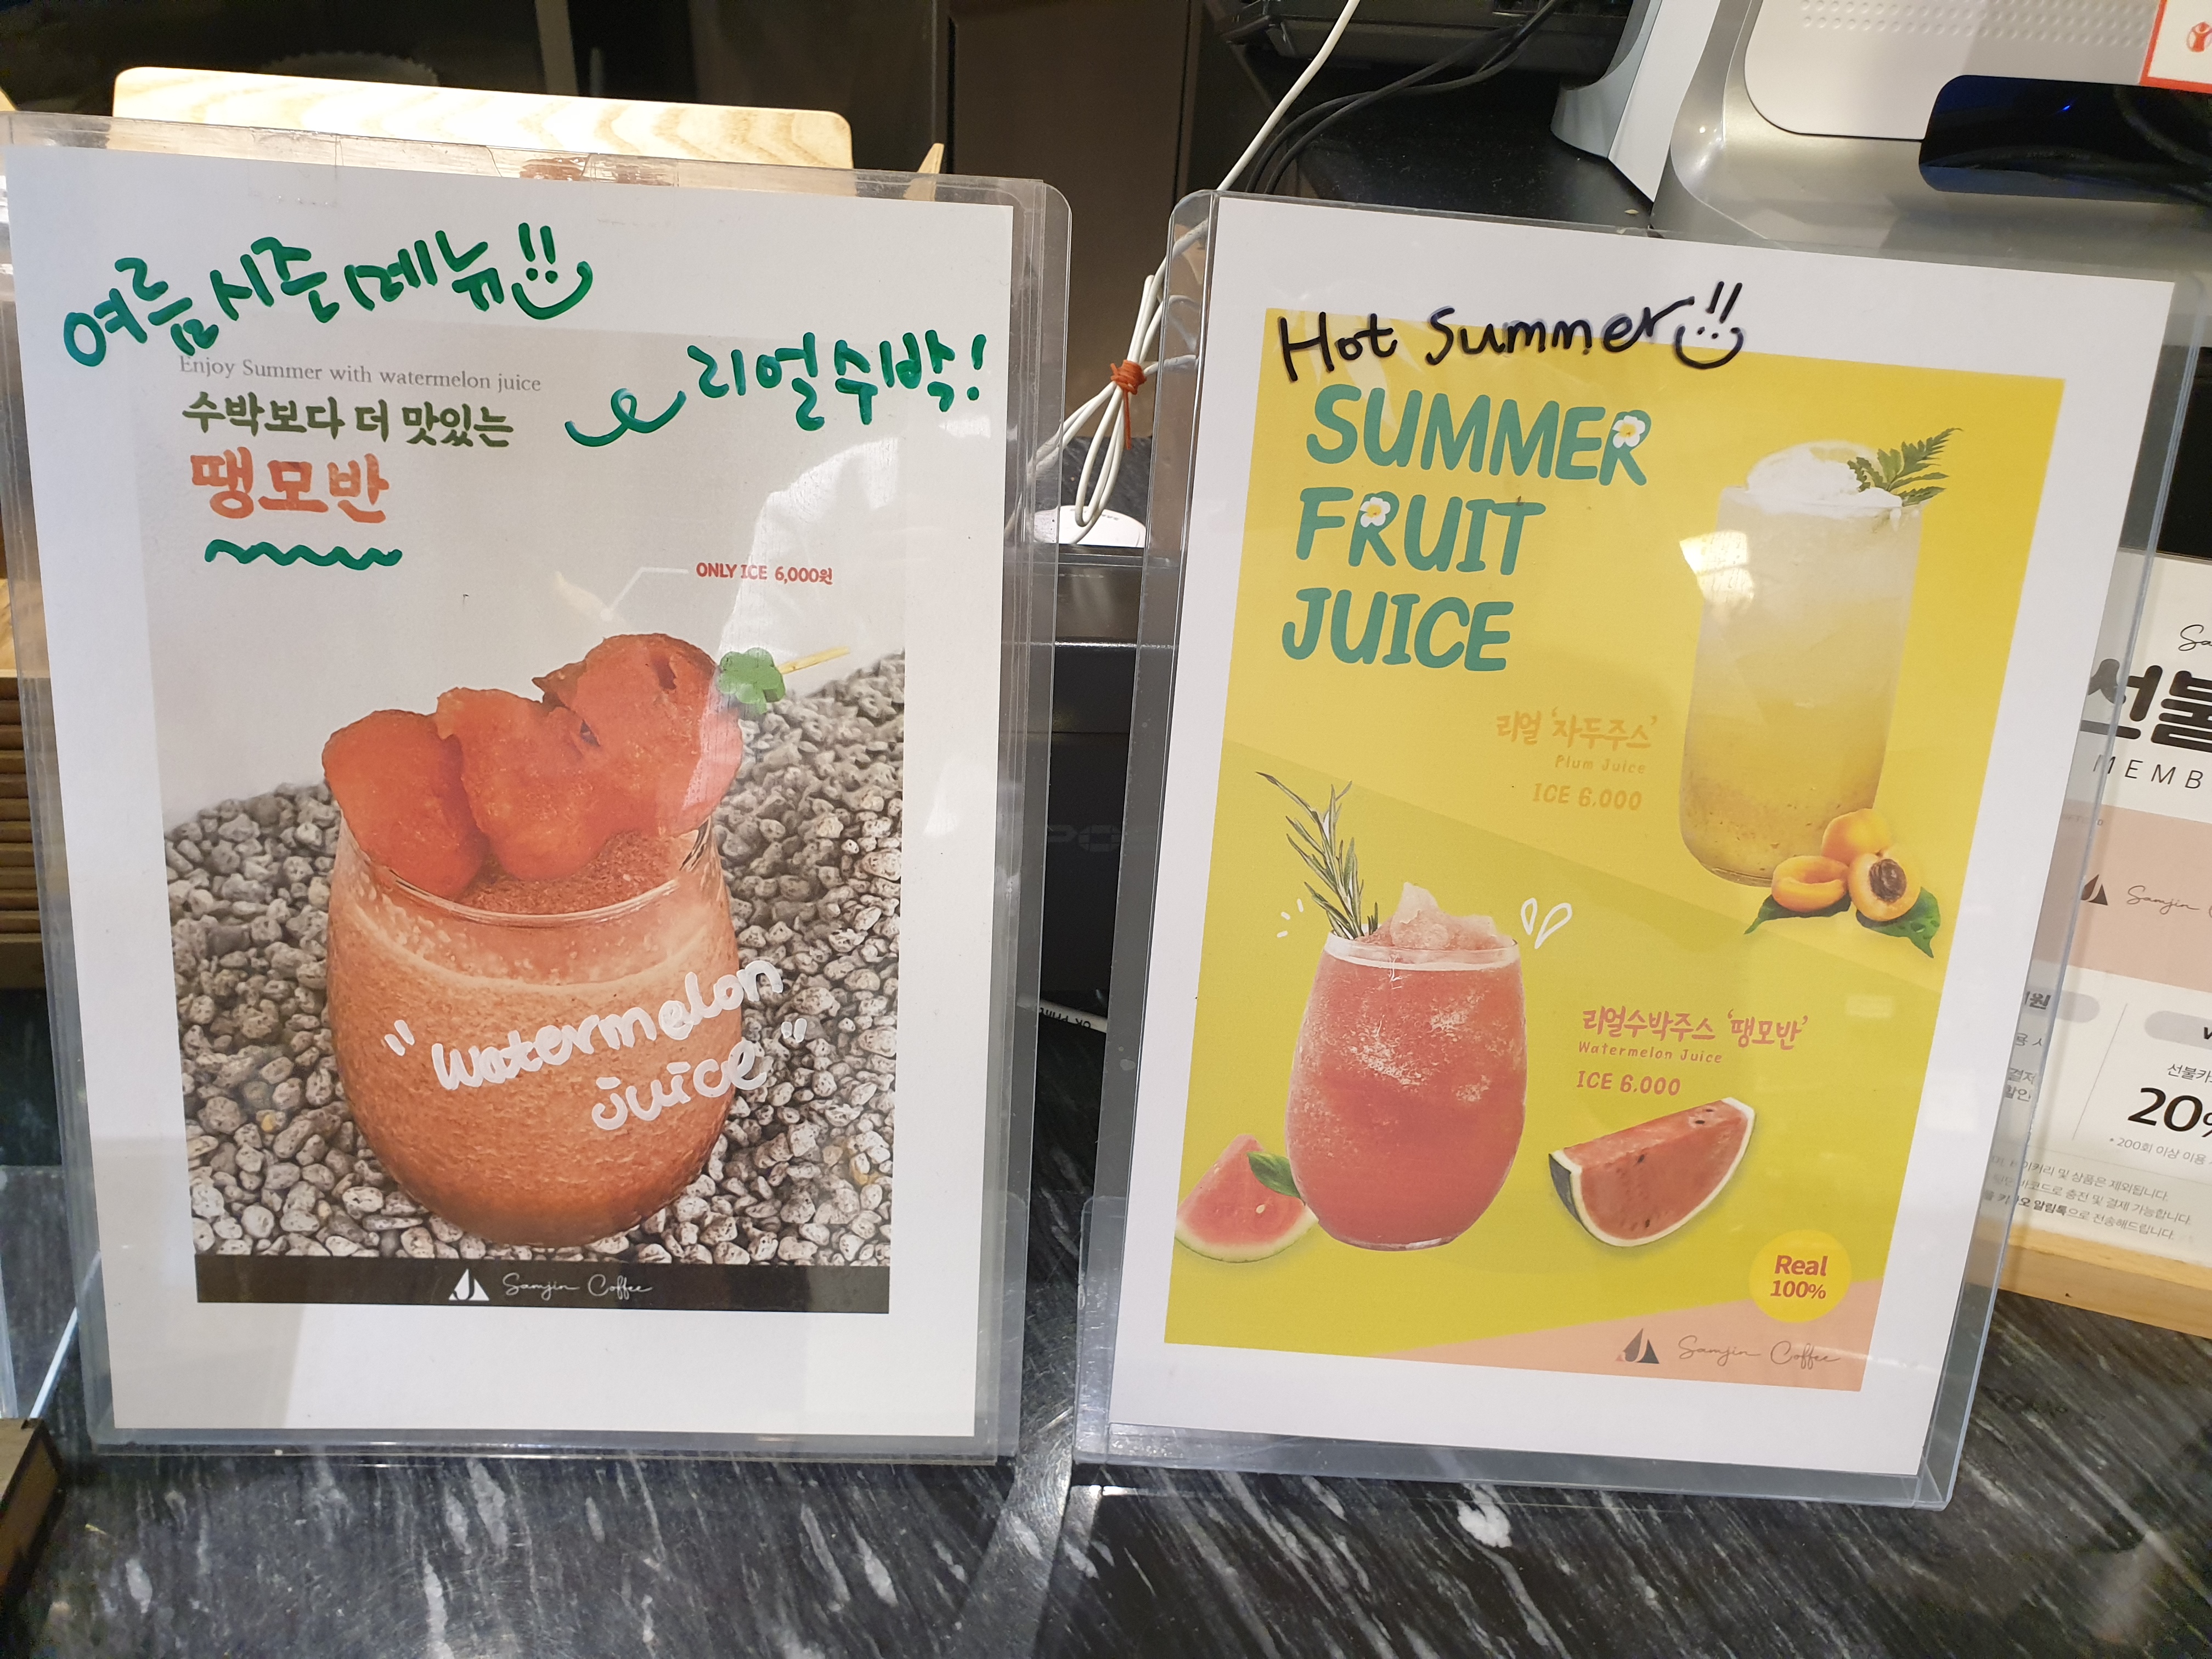 여름시즌메뉴!!
Enjoy Summer with watermelon juice
리얼수박!
수박보다 더 맛있는
땡모반
ONLY ICE 6,000원
"watermelon
juice"
Samjin Coffee
Hot Summer!!
SUMMER
FRUIT
JUICE
리얼 '자두주스'
Plum Juice
ICE 6.000
리얼수박주스 '땡모반'
Watermelon Juice
ICE 6.000
Real
100%
Samjin Coffee
선불
MEMB
Samjin
20%
*200회 이상 이용
및 상품은 제외됩니다.
바코드로 충전 및 결제 가능합니다.
알림톡으로 전송해드립니다.